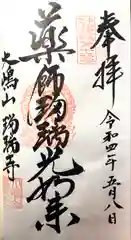 奉拝
令和四年五月八日
薬師瑠璃光如来
大嶋山 瑠璃寺